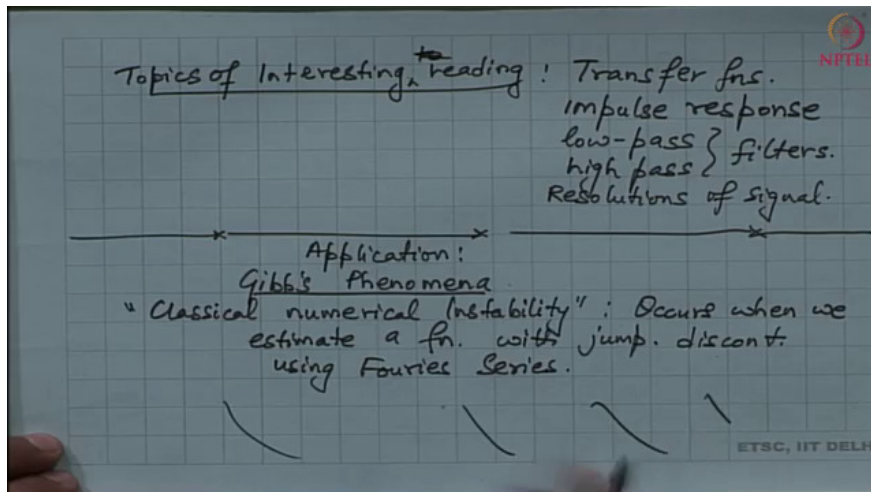 Topics of Interesting to reading : Transfer fns.
Impulse response
low-pass } filters.
high pass
Resolutions of signal.
Application :
Gibb's Phenomena
"Classical numerical Instability" : Occurs when we
estimate a fn. with jump. discont.
using Fouries Series.
NPTEL
ETSC, IIT DELH